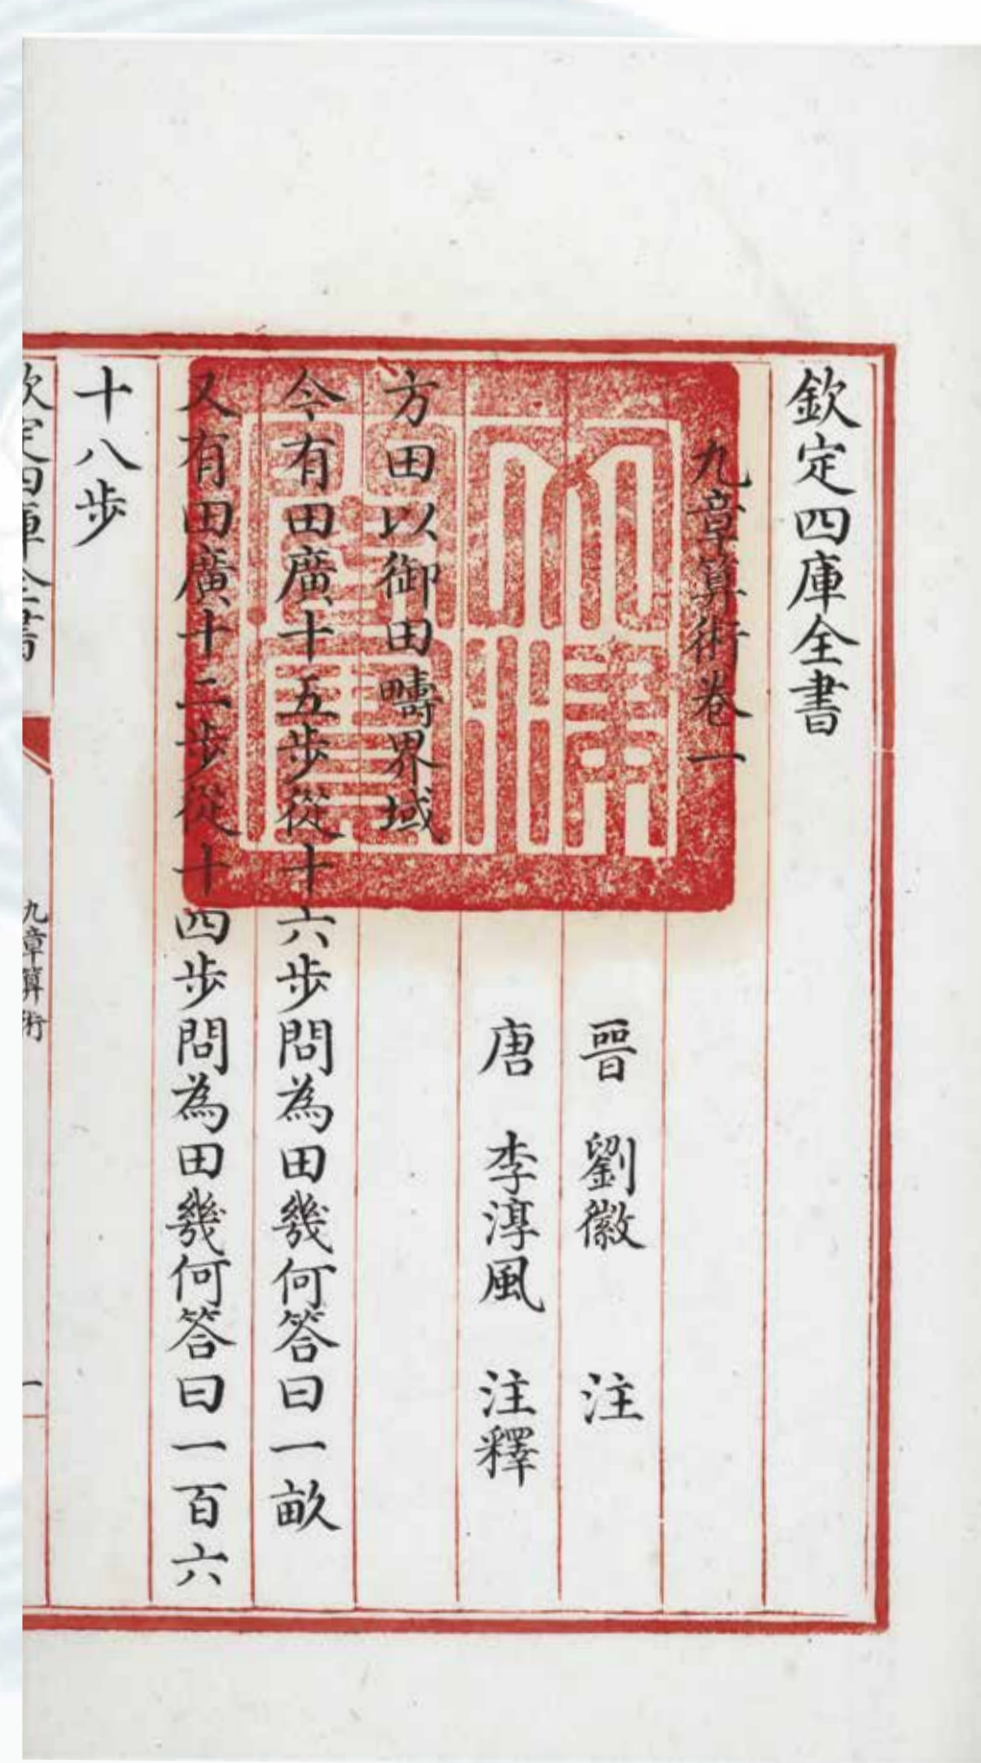 欽定四庫全書
九章算術卷一
晉 劉徽 注
唐 李淳風 注釋
方田以御田疇界域
今有田廣十五步從十六步問為田幾何答曰一畝
又有田廣十二步從十四步問為田幾何答曰一百六
十八步
欽定四庫全書
九章算術
一